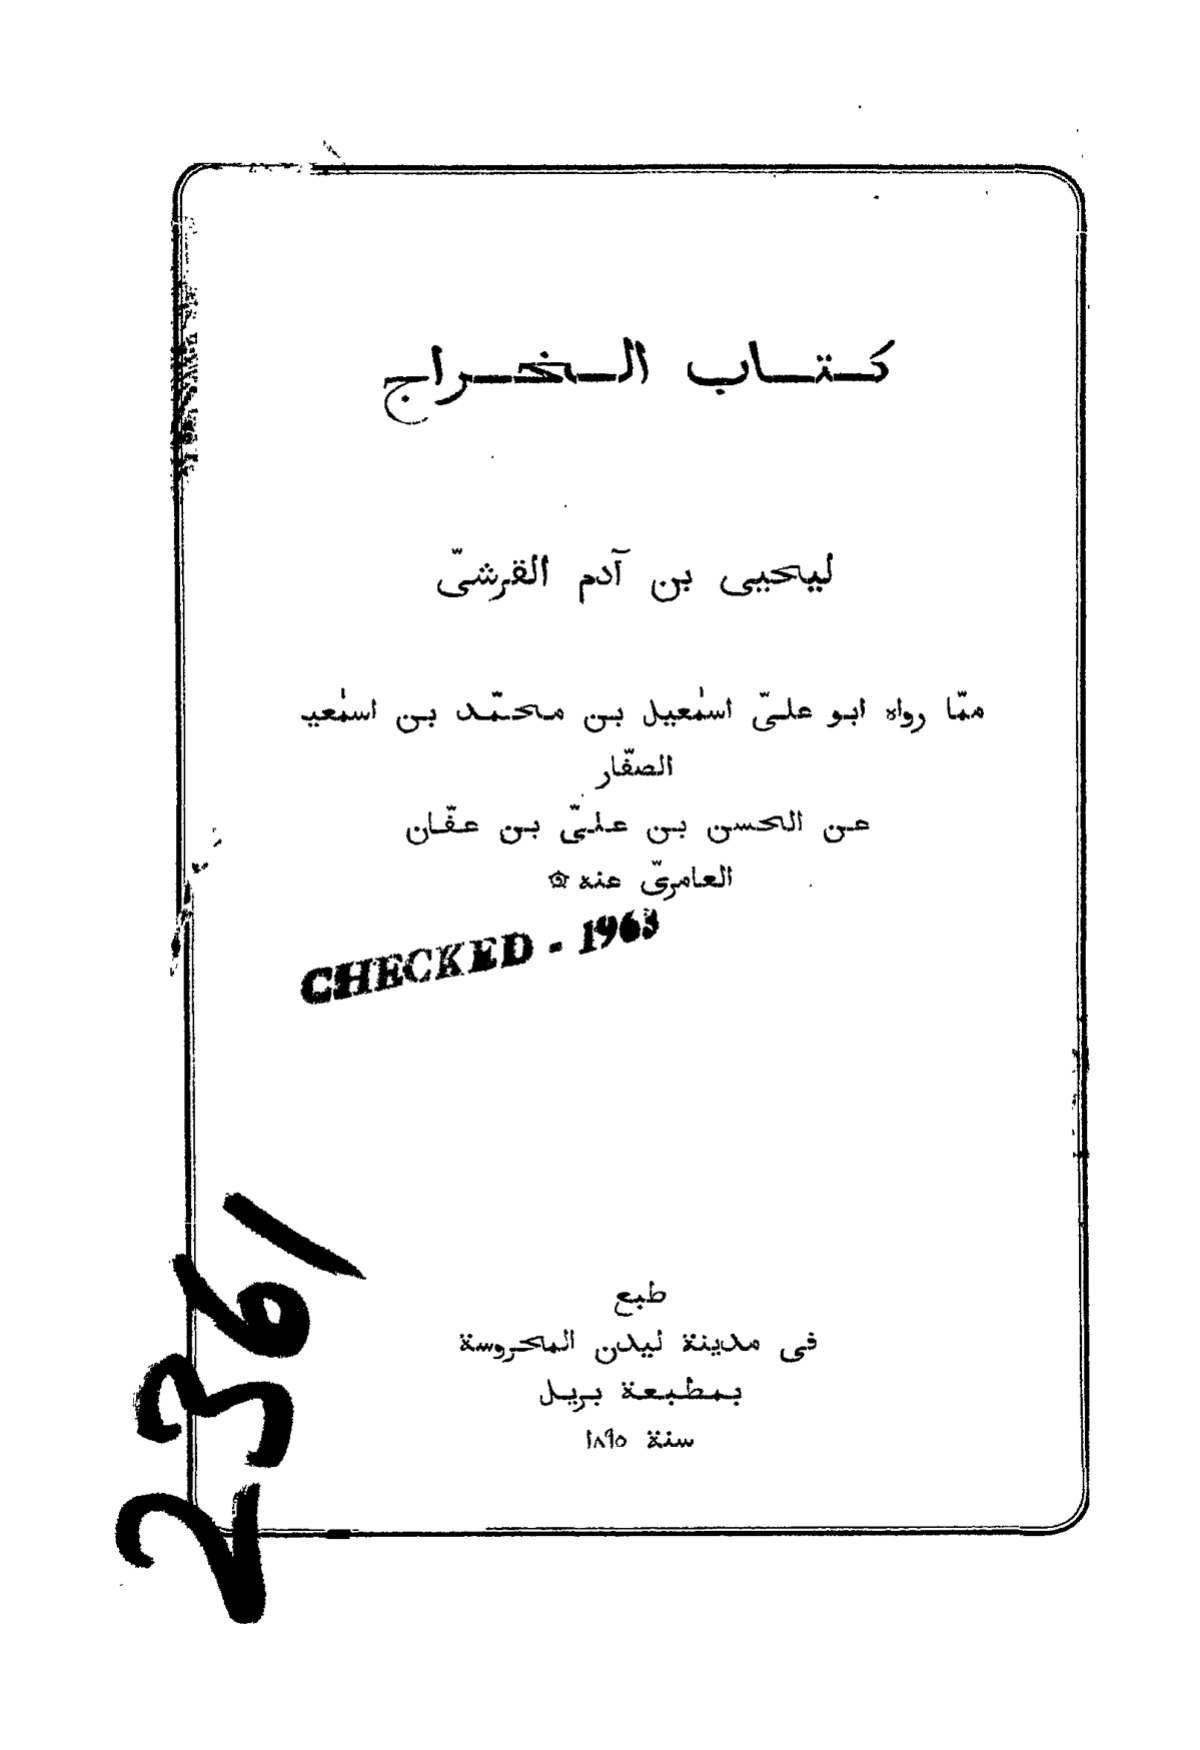 كتاب الخراج
ليحيى بن آدم القرشىّ
ممّا رواه ابو علىّ اسمٰعيل بن محمّد بن اسمٰعيـ
الصفّار
عن الحسن بن علىّ بن عفّان
العامرىّ عنه ۞
CHECKED - 1963
طبع
فى مدينة ليدن المحروسة
بمطبعة بريل
سنة ١٨٩٥
2361